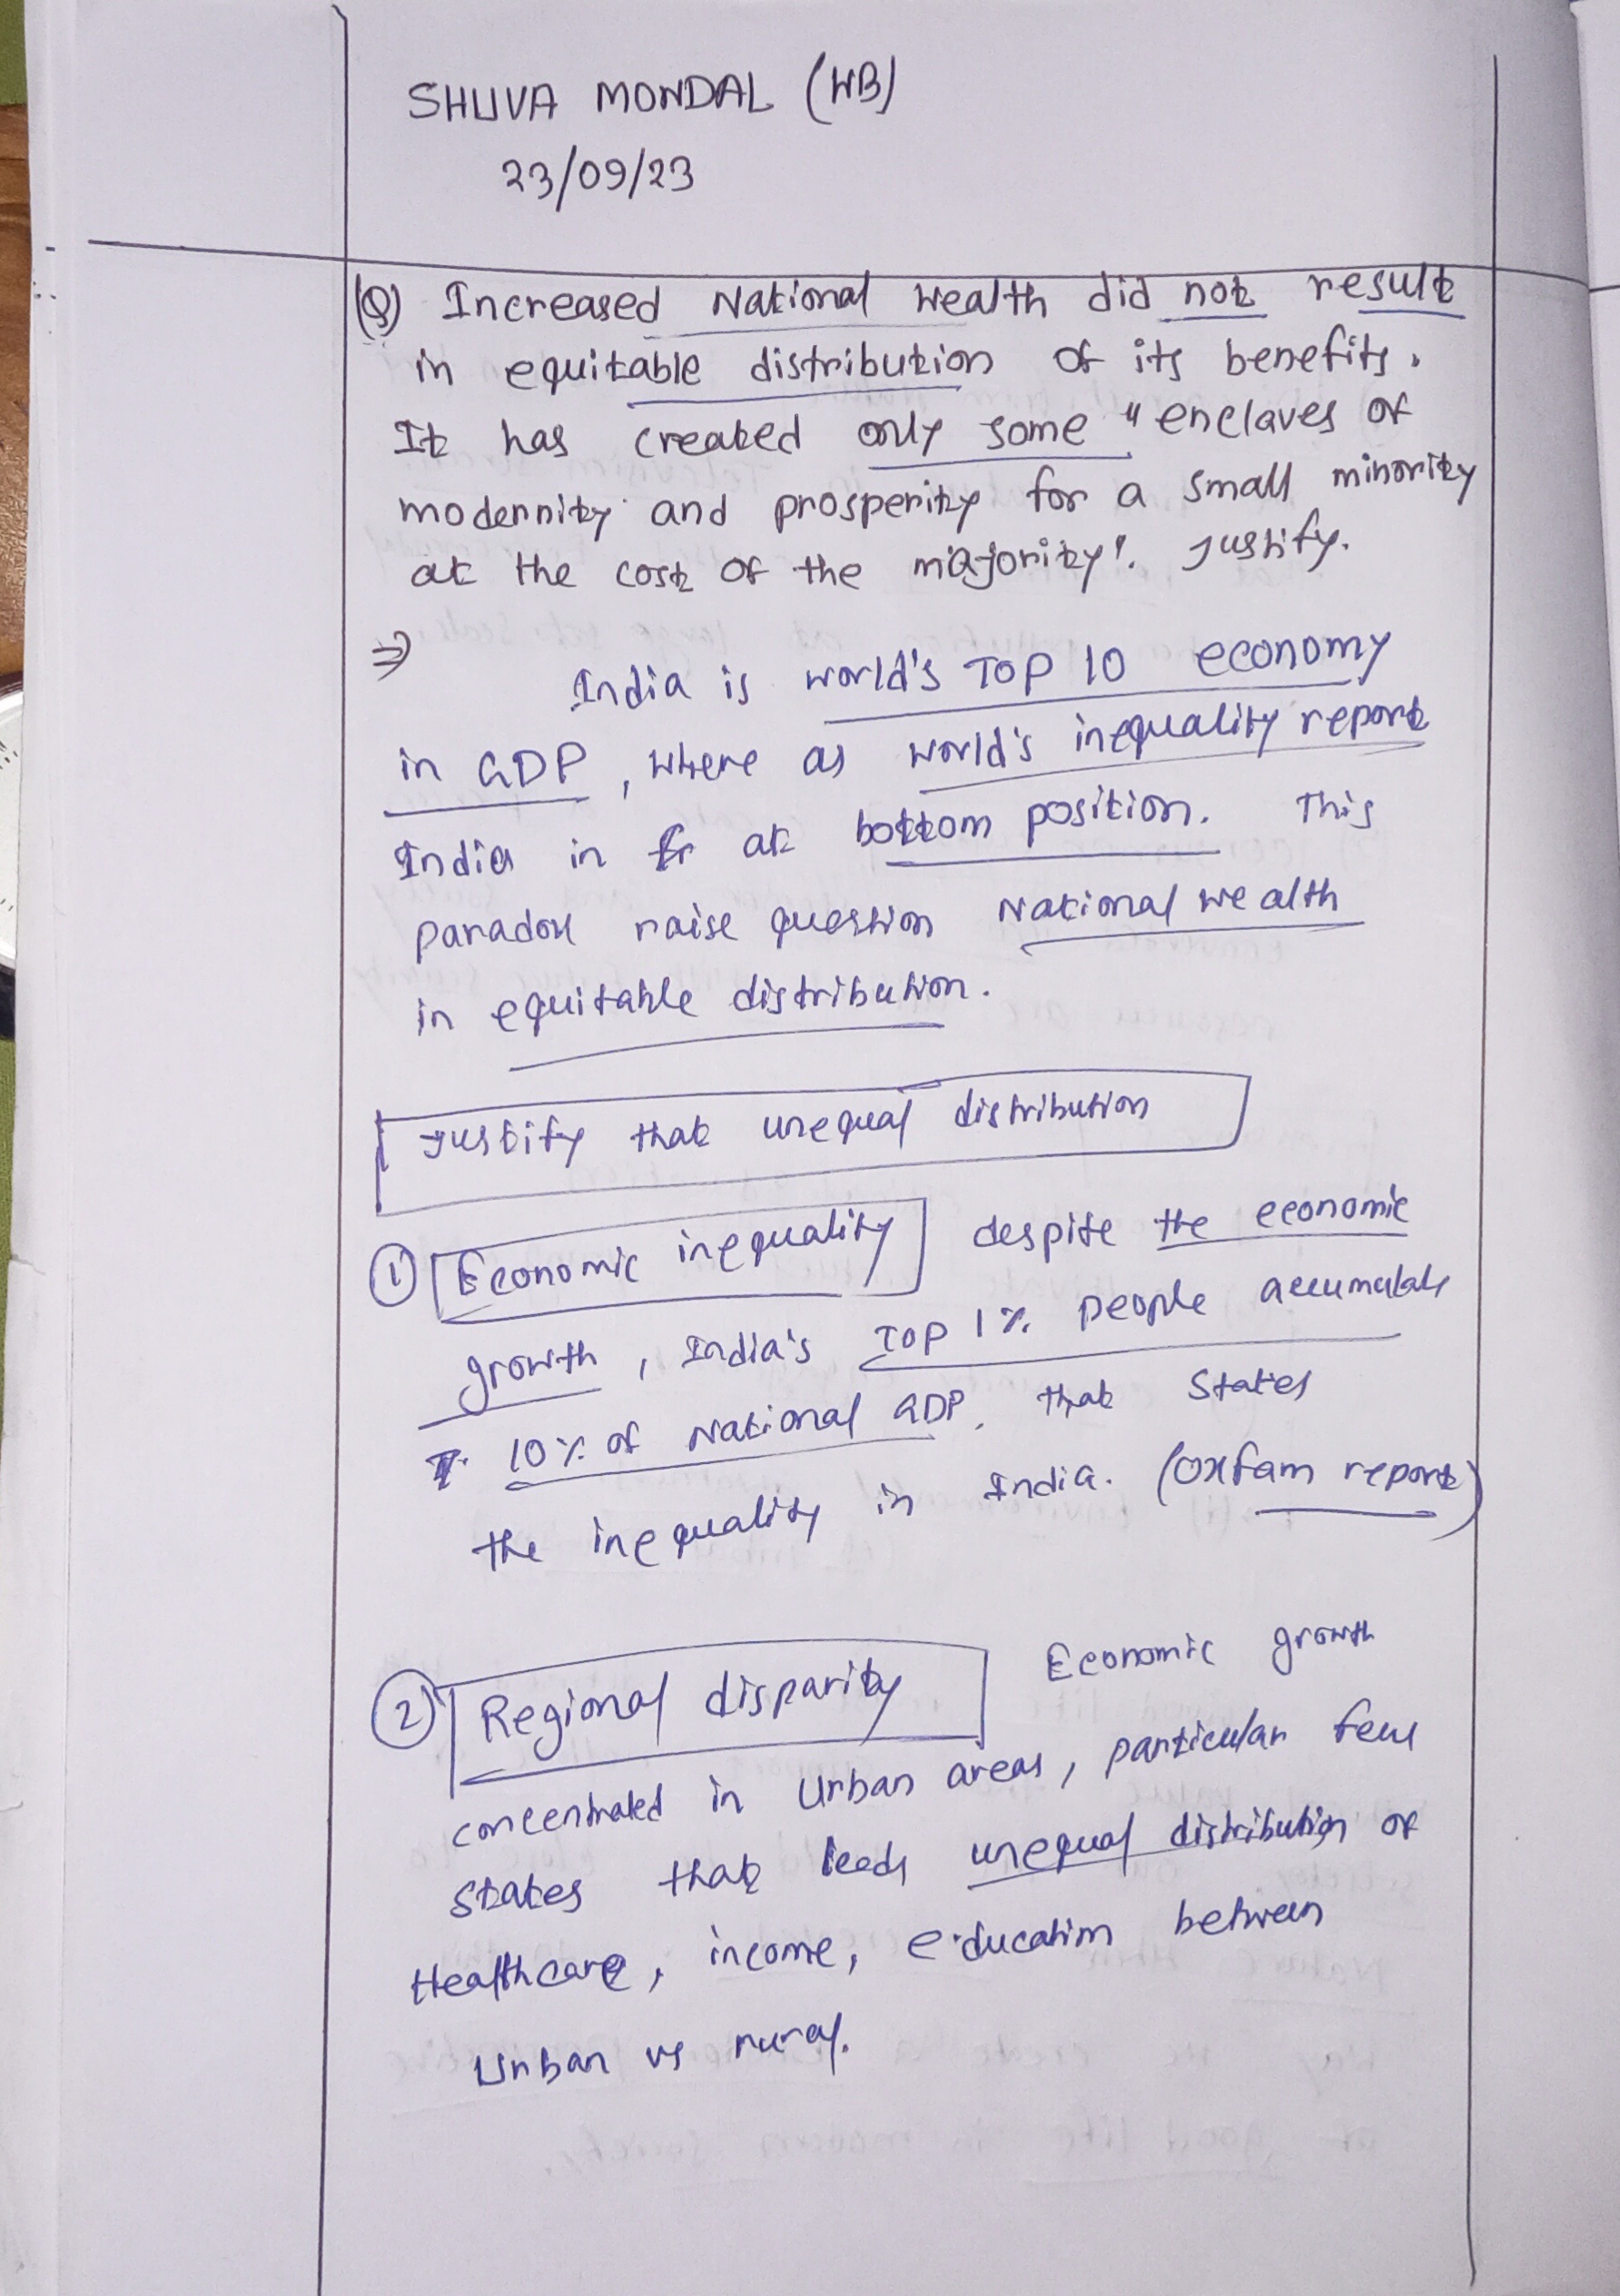 SHUVA MONDAL (WB)
23/09/23
(Q) Increased National Wealth did not result
in equitable distribution of its benefits.
It has created only some "enclaves of
modernity and prosperity for a small minority
at the cost of the majority". Justify.
⇒
India is world's TOP 10 economy
in GDP, where as world's inequality report
India in at bottom position. This
paradox raise question National wealth
in equitable distribution.
Justify that unequal distribution
① Economic inequality despite the economic
growth, India's TOP 1% people accumulate
10% of National GDP, that States
the inequality in India. (Oxfam report)
② Regional disparity Economic growth
concentrated in Urban areas, particular few
states that leads unequal distribution of
Healthcare, income, education between
Urban vs rural.